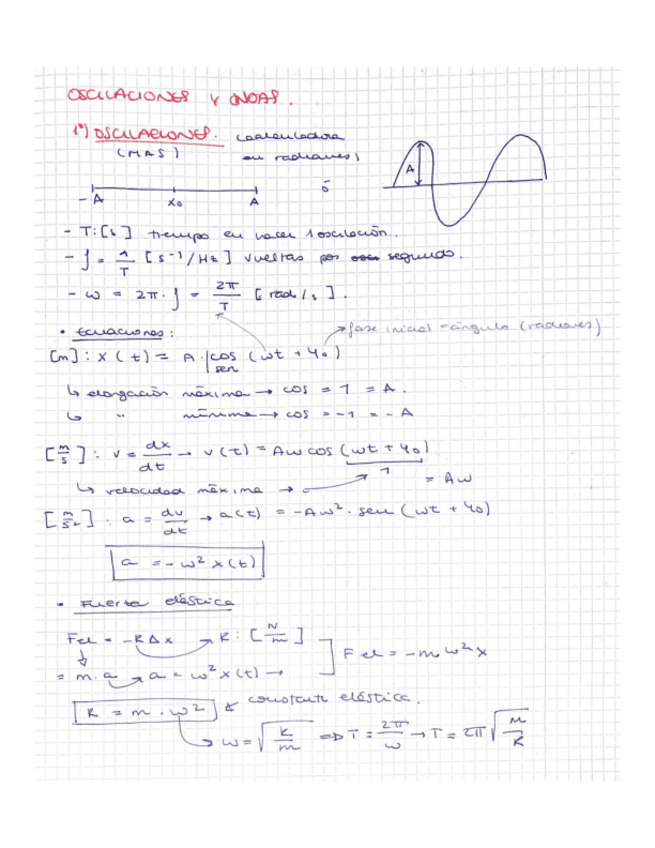 OSCILACIONES Y ONDAS.
1º) OSCILACIONES. (calculadora
(MAS) en radianes)
A
-A x₀ A
- T: [s] tiempo en hacer 1 oscilación.
- f = 1/T [s⁻¹/Hz] vueltas por segundo.
- ω = 2π · f = 2π/T [rad/s].
• Ecuaciones: fase inicial = ángulo (radianes)
[m]: x(t) = A · |cos (ωt + φ₀)
sen
↳ elongación máxima → cos = 1 = A.
↳ " mínima → cos = -1 = -A
[m/s]: v = dx/dt → v(t) = Aω cos (ωt + φ₀)
1
↳ velocidad máxima → = Aω
[m/s²]: a = dv/dt → a(t) = -Aω² · sen (ωt + φ₀)
a = -ω² x(t)
• Fuerza elástica
Fel = -K Δx → K: [N/m]
Fel = -mω²x
= m · a → a = ω² x(t) →
K = m · ω² constante elástica.
↳ ω = √(K/m) ⇒ T = 2π/ω → T = 2π √(M/K)